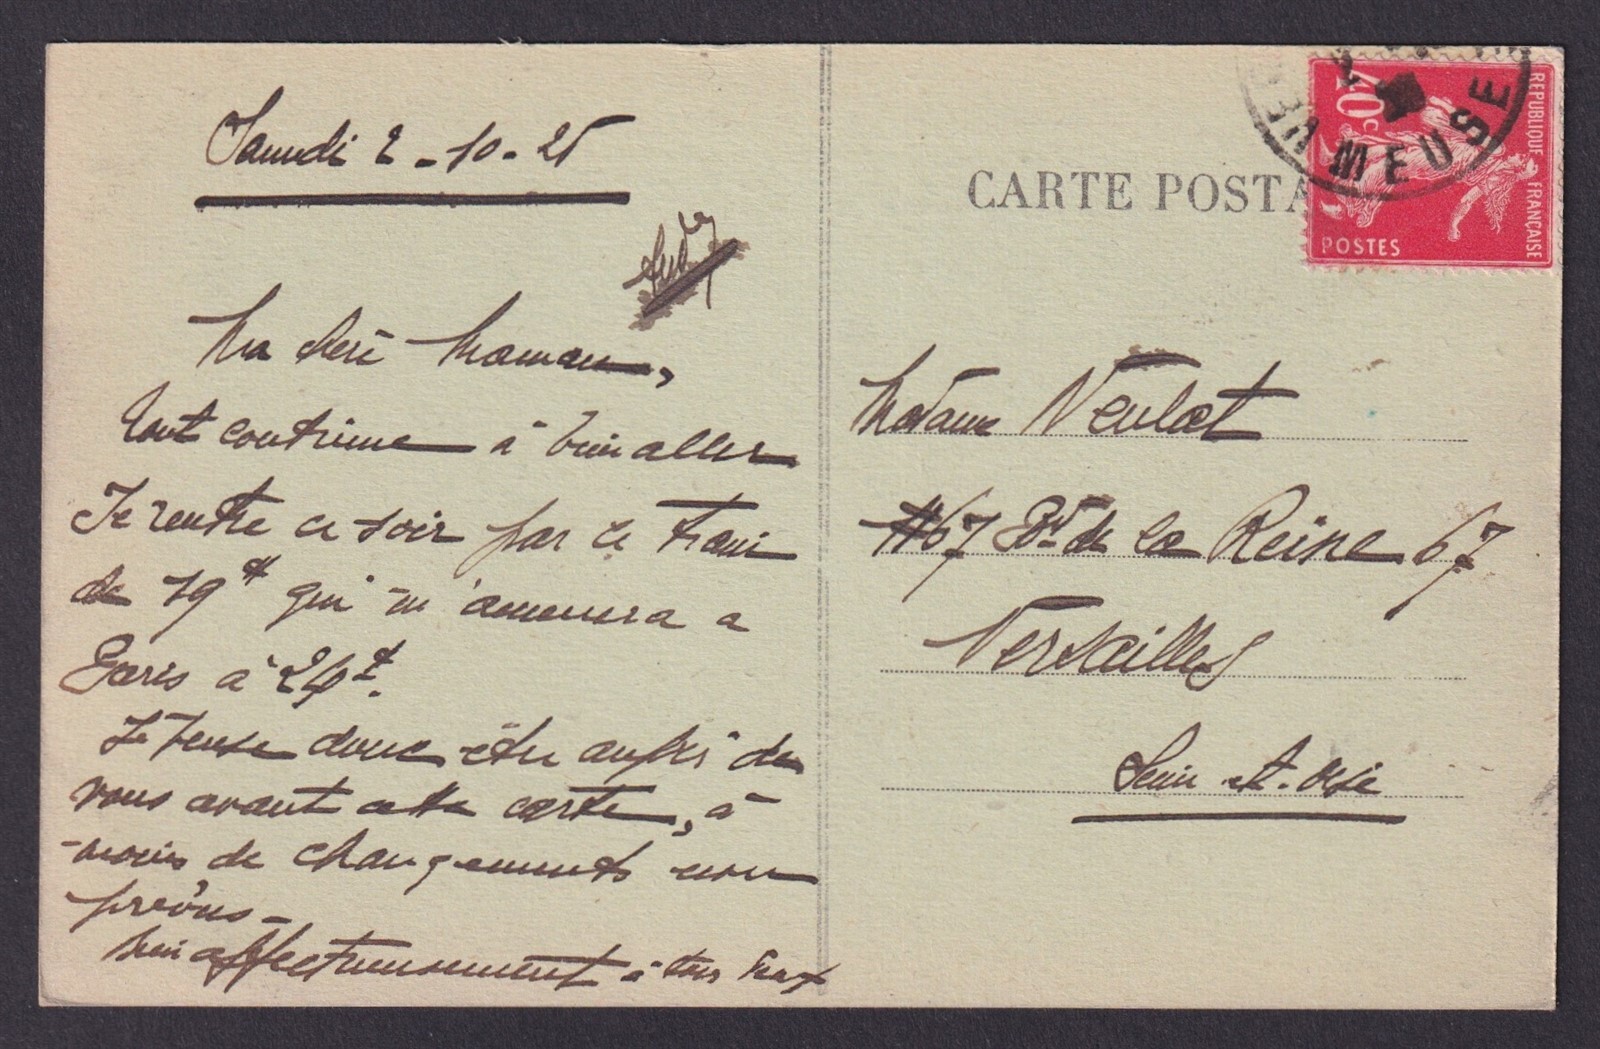 Samedi 2 - 10 - 26
Ma cheri Maman,
tout continue à bien aller
Je rentre ce soir par le train
de 19 qui m'amenera a
Paris à 24
Je pense donc être auprès de
vous avant cette carte, à
moins de changements non
prévus -
bien affectueusement à tous deux
CARTE POSTA
REPUBLIQUE FRANÇAISE
40c
POSTES
MEUSE
Madame
67 Bd de la Reine 67
Versailles
Seine et. Oise